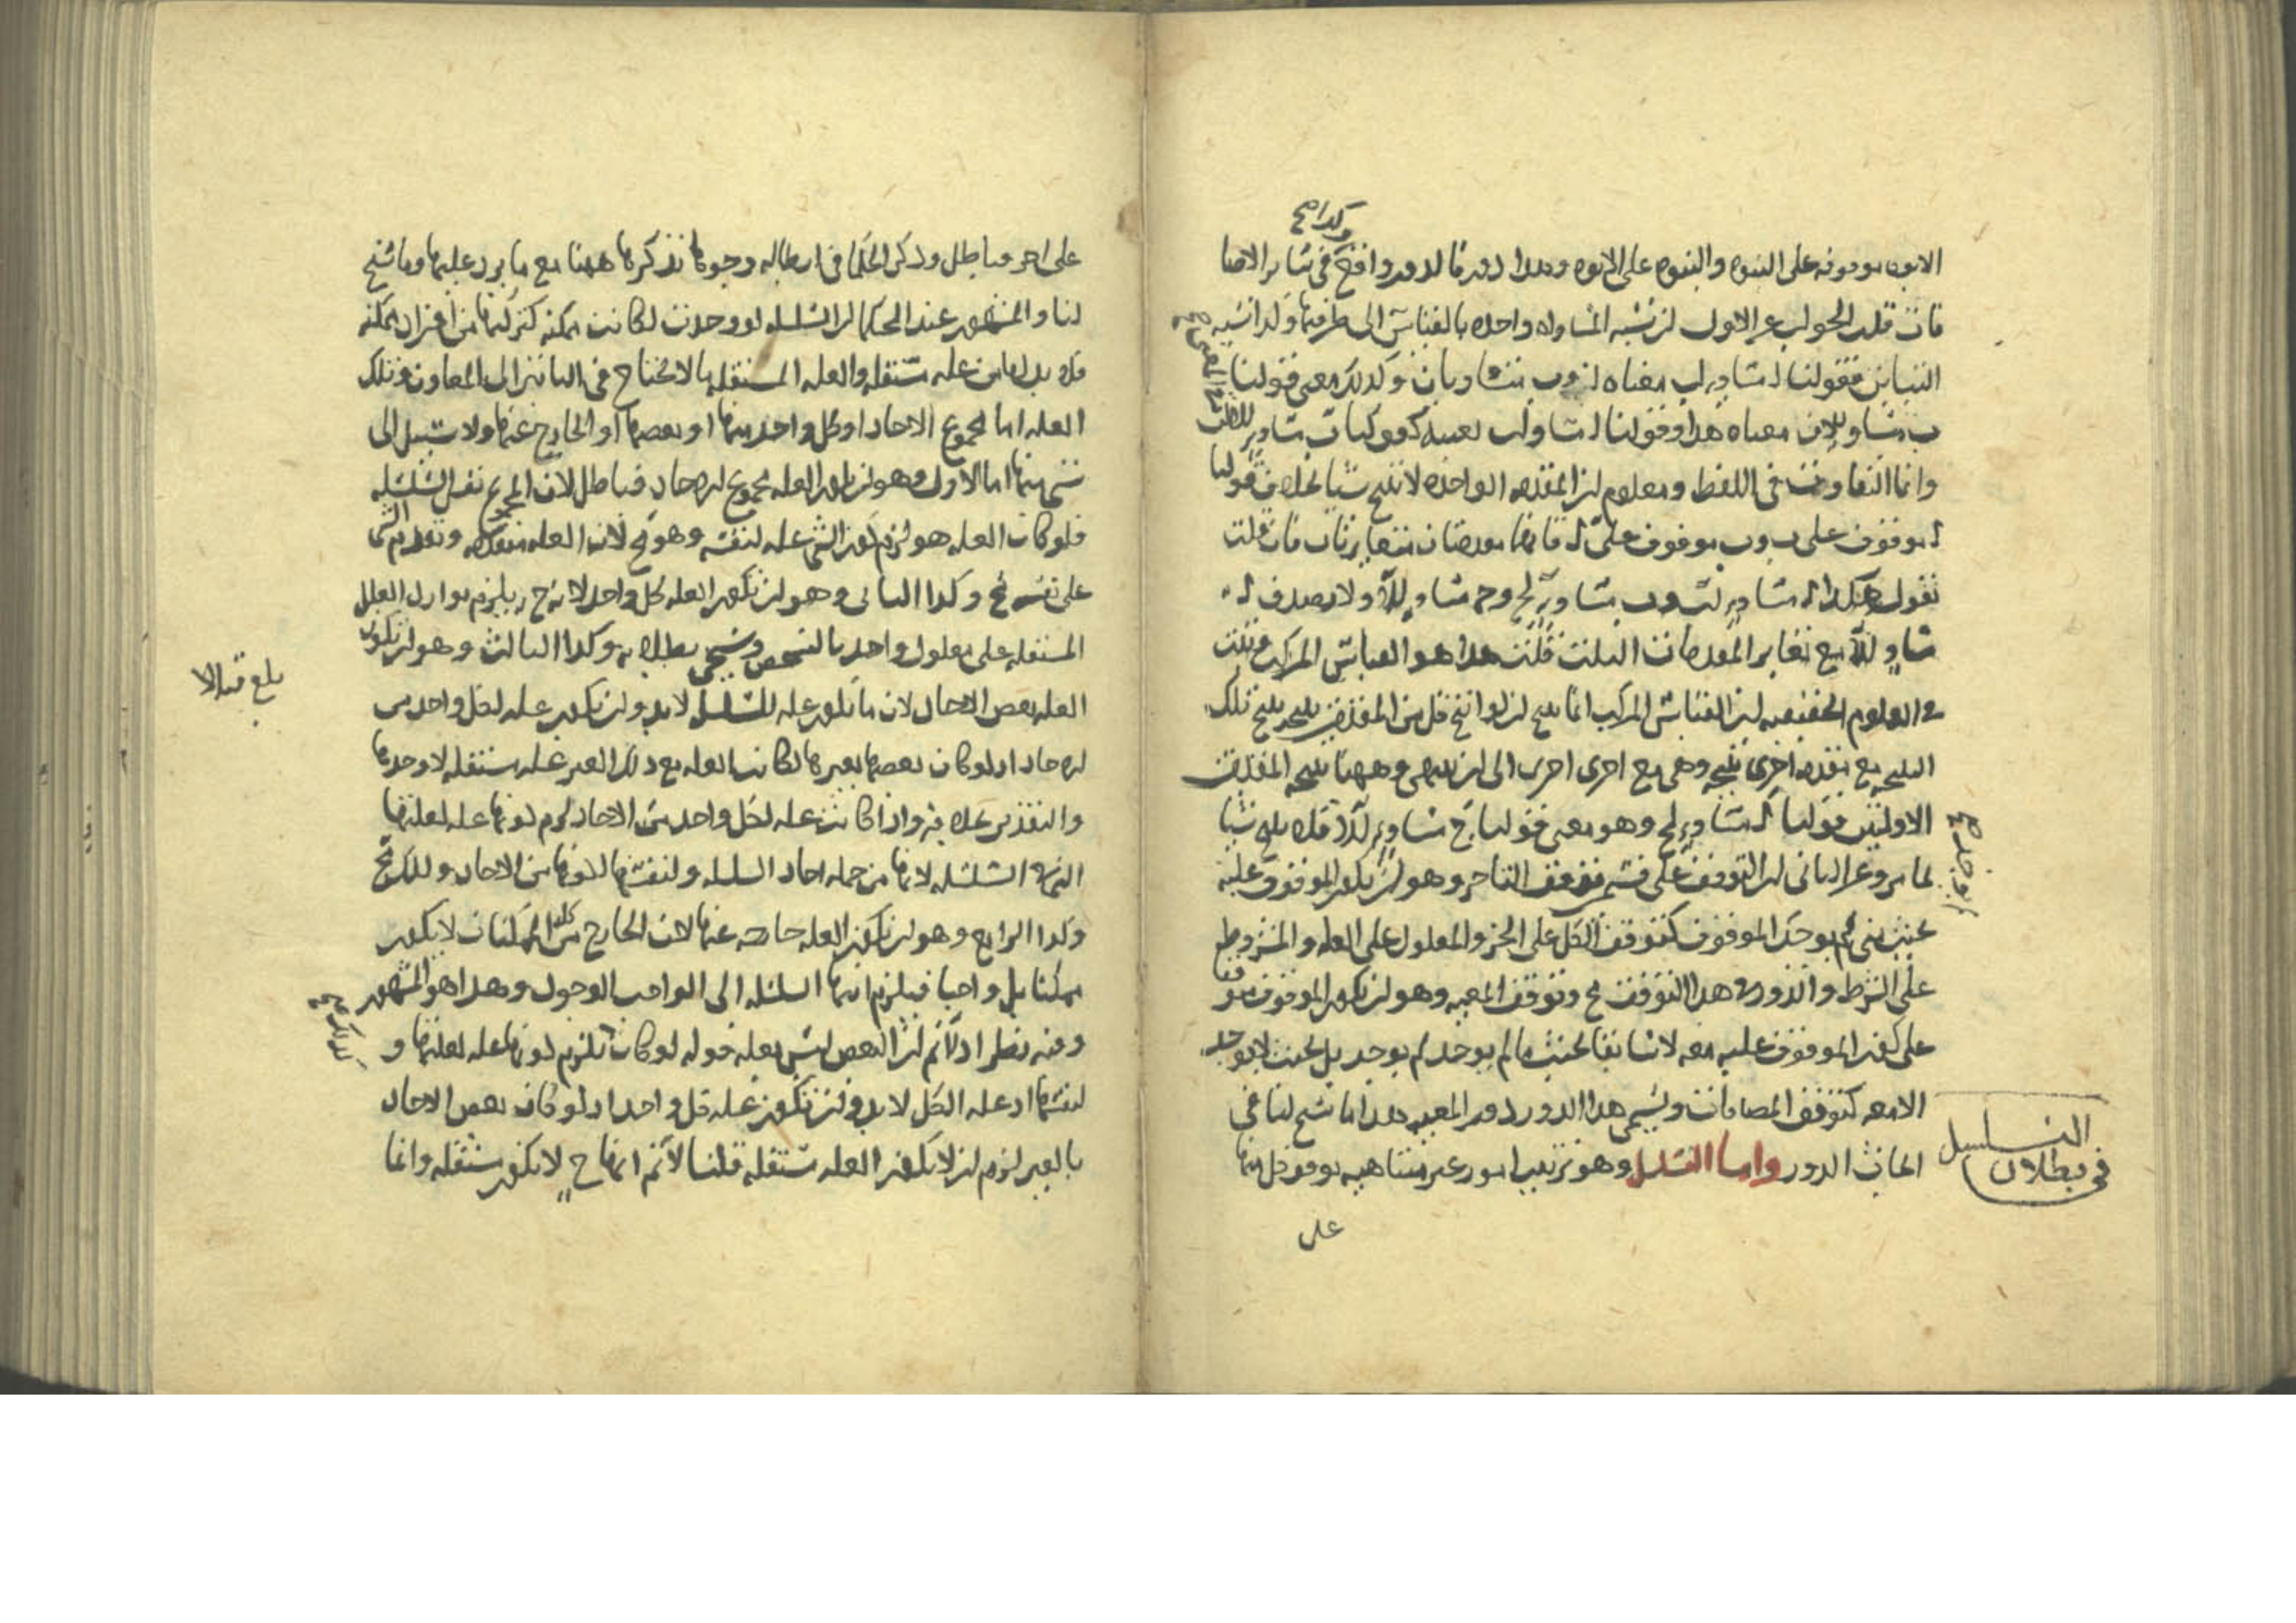 وكذا صح
الابوه موقوفه على البنوه والبنوه على الابوه وهذا دور فالدور واقع في ساير الاضا
فان قلت الجواب عن الاول لن نسبه المساواه واحده بالقياس الى طرفيها وكذا نسبه
التباين فقولنا ا مساو لب معناه ا و ب متساويان وكذلك معنى قولنا
ب مساو لا فان معناه هذا وقولنا ا مساو لب بعينه كقولنا ب مساو لا
وانما التفاوت في اللفظ ومعلوم لن المقدمه الواحده لا تنتج شيا بخلاف قولنا
ا موقوف على ب و ب موقوف على ا فانهما مقدمتان متغايرتان فان قلت
نقول هكذا ا مساو لب و ب مساو لج و ج مساو لا ولا يصدق ا
مساو لا مع تغاير المقدمات الثلث قلت هذا هو القياس المركب وتبين
في العلوم الحقيقيه لن القياس المركب انما ينتج لن لو انتج كل من المقدمتين نتيجه ينتج تلك
النتيجه مع مقدمه اخرى نتيجه وهي مع اخرى اخرى الى لن ينتهي وههنا نتيجه المقدمتين
الاوليين قولنا ا مساو لج وهو معنى قولنا ج مساو لا فلا ينتج شيا
لما مر وعن الثاني لن التوقف على قسمين توقف التاخر وهو لن يكون الموقوف عليه
بحيث متى لم يوجد الموقوف كتوقف الكل على الجزء والمعلول على العله والمشروط
على الشرط والدور في هذا التوقف مح وتوقف المعيه وهو لن يكون الموقوف موقوفا
على كون الموقوف عليه معه لا سابقا بحيث ما لم يوجد لم يوجد بل بحيث لا يوجد
الا معه كتوقف المضافات ويسمى هذا الدور دور المعيه هذا ما سنح لنا في
ابحاث الدور واما التسلسل وهو ترتيب امور غير متناهيه موقوف كل منها
التسلسل
في بطلان
على
على اخر فباطل وذكر الحكما في ابطاله وجوها نذكرها ههنا مع ما يرد عليها وما سنح
لنا والمشهور عند الحكما لن السلسله لو وجدت لكانت ممكنه لتركبها من افراد ممكنه
فلا بد لها من عله مستقله والعله المستقله ما لا يحتاج في التاثير الى المعاون وتلك
العله اما مجموع الاحاد او كل واحد منها او بعضها او الخارج عنها ولا سبيل الى
شي منها اما الاول وهو لن يكون العله مجموع الاحاد فباطل لان المجموع نفس السلسله
فلو كان العله هو لزم كون الشي عله لنفسه وهو مح لان العله متقدمه وتقدم الشي
على نفسه مح وكذا الثاني وهو لن تكون العله كل واحد لانه ح يلزم توارد العلل
المستقله على معلول واحد بالشخص وسيجي بطلانه وكذا الثالث وهو لن تكون
العله بعض الاحاد لان ما يكون عله للسلسله لا بد ولن يكون عله لكل واحد من
الاحاد اذ لو كان بعضها بغيرها لكانت العله مع ذلك الغير عله مستقله لا وحدها
والتقدير بخلافه واذا كانت عله لكل واحد من الاحاد لزم كونها عله لعلتها
التي في السلسله لانها من جمله احاد السلسله ولنفسها لكونها من الاحاد وذلك مح
وكذا الرابع وهو لن تكون العله خارجه عنها لان الخارج من كل الممكنات لا يكون
ممكنا بل واجبا فيلزم انتها السلسله الى الواجب الوجود وهذا هو المشهور
وفيه نظر اذ لا نم لن البعض ليس بعله قوله لو كان يلزم كونها عله لعلتها و
لنفسها اذ عله الكل لا بد ولن تكون عله كل واحد اذ لو كان بعض الاحاد
بالغير لزم لن لا يكون العله مستقله قلنا لا نم انها ح لا يكون مستقله وانما
بلغ قبالا